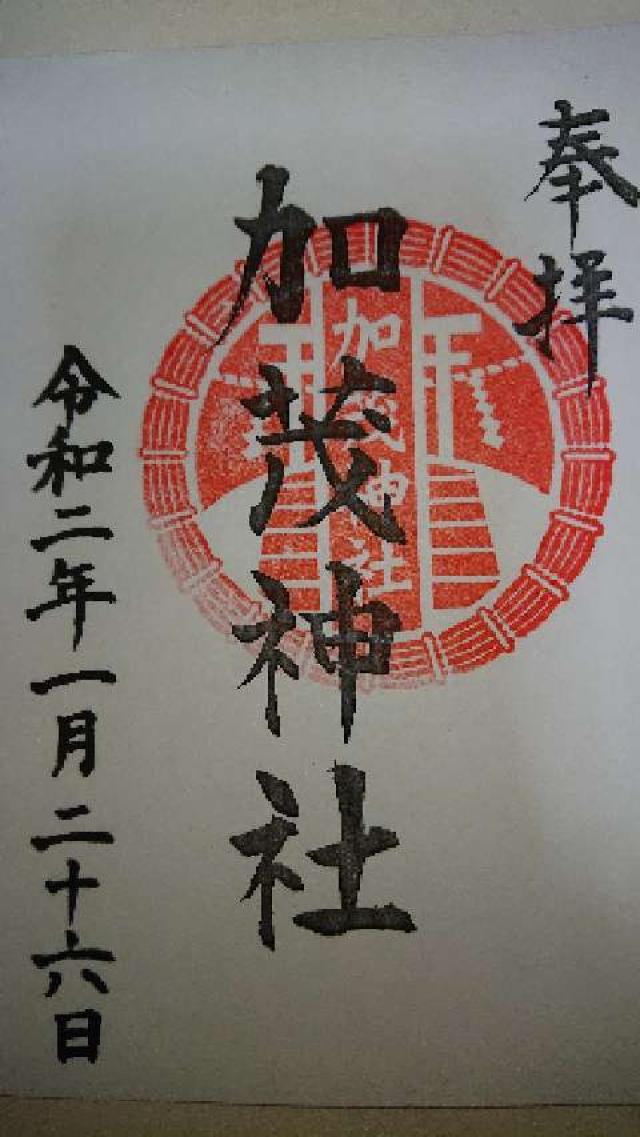 奉拝
加茂神社
加茂神社
令和二年一月二十六日